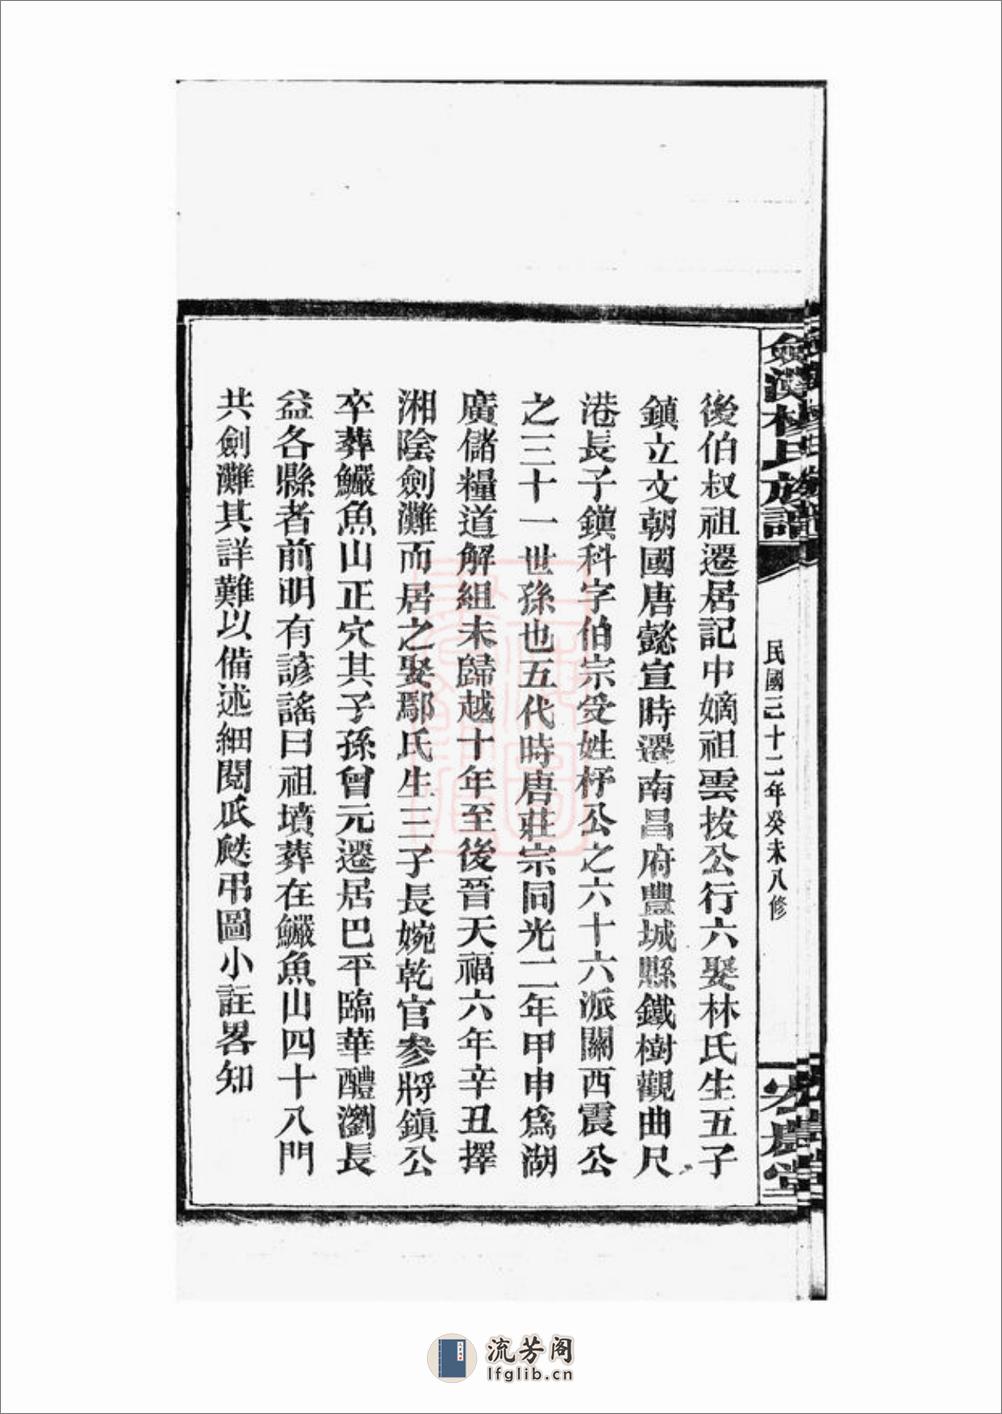 後伯叔祖遷居記中嫡祖雲拔公行六娶林氏生五子
鎮立文朝國唐懿宣時遷南昌府豐城縣鐵樹觀曲尺
港長子鎮科字伯宗受姓杼公之六十六派關西震公
之三十一世孫也五代時唐莊宗同光二年甲申爲湖
廣儲糧道解組未歸越十年至後晉天福六年辛丑擇
湘陰劍灘而居之娶鄢氏生三子長婉乾官參將鎮公
卒葬鱺魚山正穴其子孫曾元遷居巴平臨華醴瀏長
益各縣者前明有諺謠曰祖墳葬在鱺魚山四十八門
共劍灘其詳難以備述細閱瓜瓞弔圖小註畧知
民國三十二年癸未八修
流芳阁
lfglib.cn